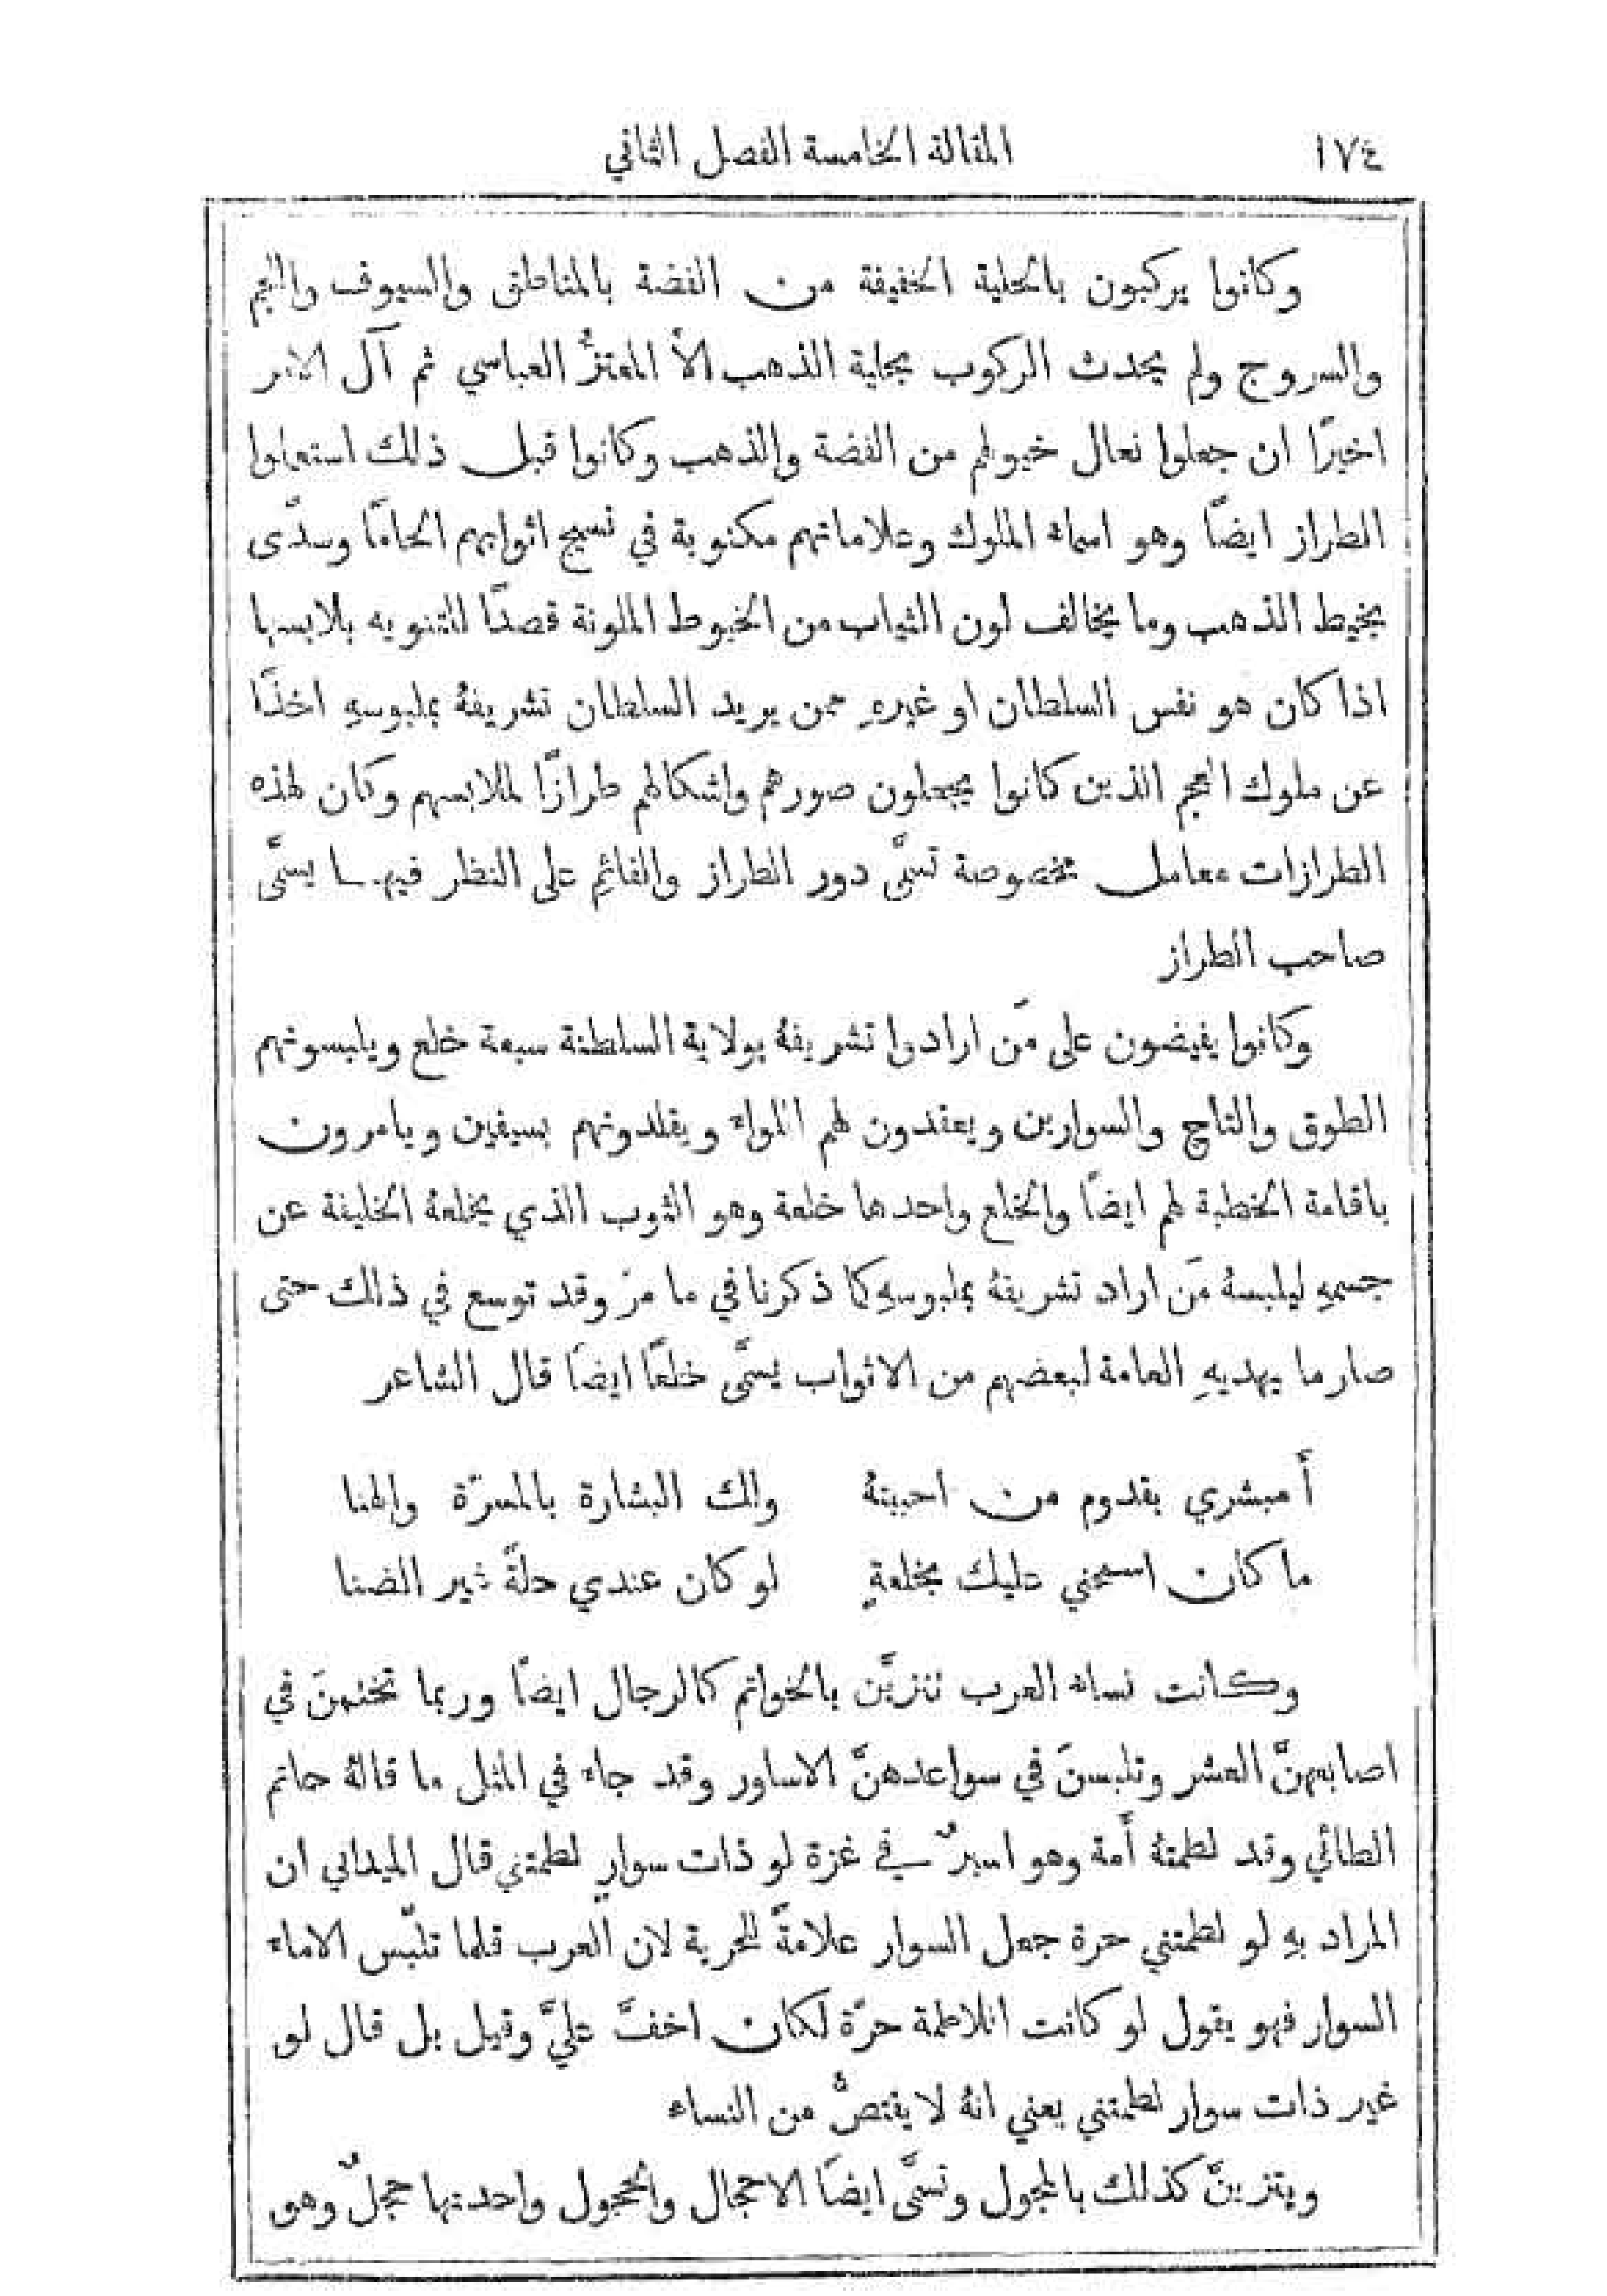 ١٧٤ المقالة الخامسة الفصل الثاني
وكانوا يركبون بالحلية الخفيفة من الفضة بالمناطق والسيوف واللجم
والسروج ولم يحدث الركوب بحلية الذهب الأ المعتزُّ العباسي ثم آل الامر
اخيرًا ان جعلوا نعال خيولهم من الفضة والذهب وكانوا قبل ذلك استعملوا
الطراز ايضًا وهو اسماء الملوك وعلاماتهم مكتوبة في نسيج اثوابهم الحامًا وسدًى
بخيط الذهب وما يخالف لون الثياب من الخيوط الملونة قصدًا للتنويه بلابسها
اذا كان هو نفس السلطان او غيرهِ ممن يريد السلطان تشريفهُ بملبوسهِ اخذًا
عن ملوك العجم الذين كانوا يجعلون صورهم واشكالهم طرازًا لملابسهم وكان لهذه
الطرازات معامل مخصوصة تسمَّى دور الطراز والقائم على النظر فيها يسمَّى
صاحب الطراز
وكانوا يفيضون على مَن ارادوا تشريفهُ بولاية السلطنة سبعة خلع ويلبسونهم
الطوق والتاج والسوارين ويعقدون لهم اللواء ويقلدونهم بسيفين ويامرون
باقامة الخطبة لهم ايضًا والخلع واحدها خلعة وهو الثوب الذي يخلعهُ الخليفة عن
جسمهِ ليلبسهُ مَن اراد تشريفهُ بملبوسهِ كما ذكرنا في ما مرّ وقد توسع في ذلك حتى
صار ما يهديهِ العامة لبعضهم من الاثواب يسمَّى خلعًا ايضًا قال الشاعر
أَمبشري بقدوم من احببتهُ ولك البشارة بالمسرّة والهنا
ما كان اسمحني عليك بخلعةٍ لو كان عندي حلةٌ غير الضنا
وكانت نساء العرب تتزيَّن بالخواتم كالرجال ايضًا وربما تختمنَ في
اصابعهنَّ العشر وتلبسنَ في سواعدهنَّ الاساور وقد جاء في المثل ما قالهُ حاتم
الطائي وقد لطمتهُ أَمة وهو اسيرٌ في غزة لو ذات سوارٍ لطمتني قال الميداني ان
المراد بهِ لو لطمتني حرة جعل السوار علامةً للحرية لان العرب قلما تلبّس الاماء
السوار فهو يقول لو كانت اللاطمة حرّة لكان اخفَّ عليَّ وقيل بل قال لو
غير ذات سوار لطمتني يعني انهُ لا يقتصُّ من النساء
ويتزينَّ كذلك بالحجول وتسمَّى ايضًا الاحجال والحجول واحدتها حجلٌ وهو